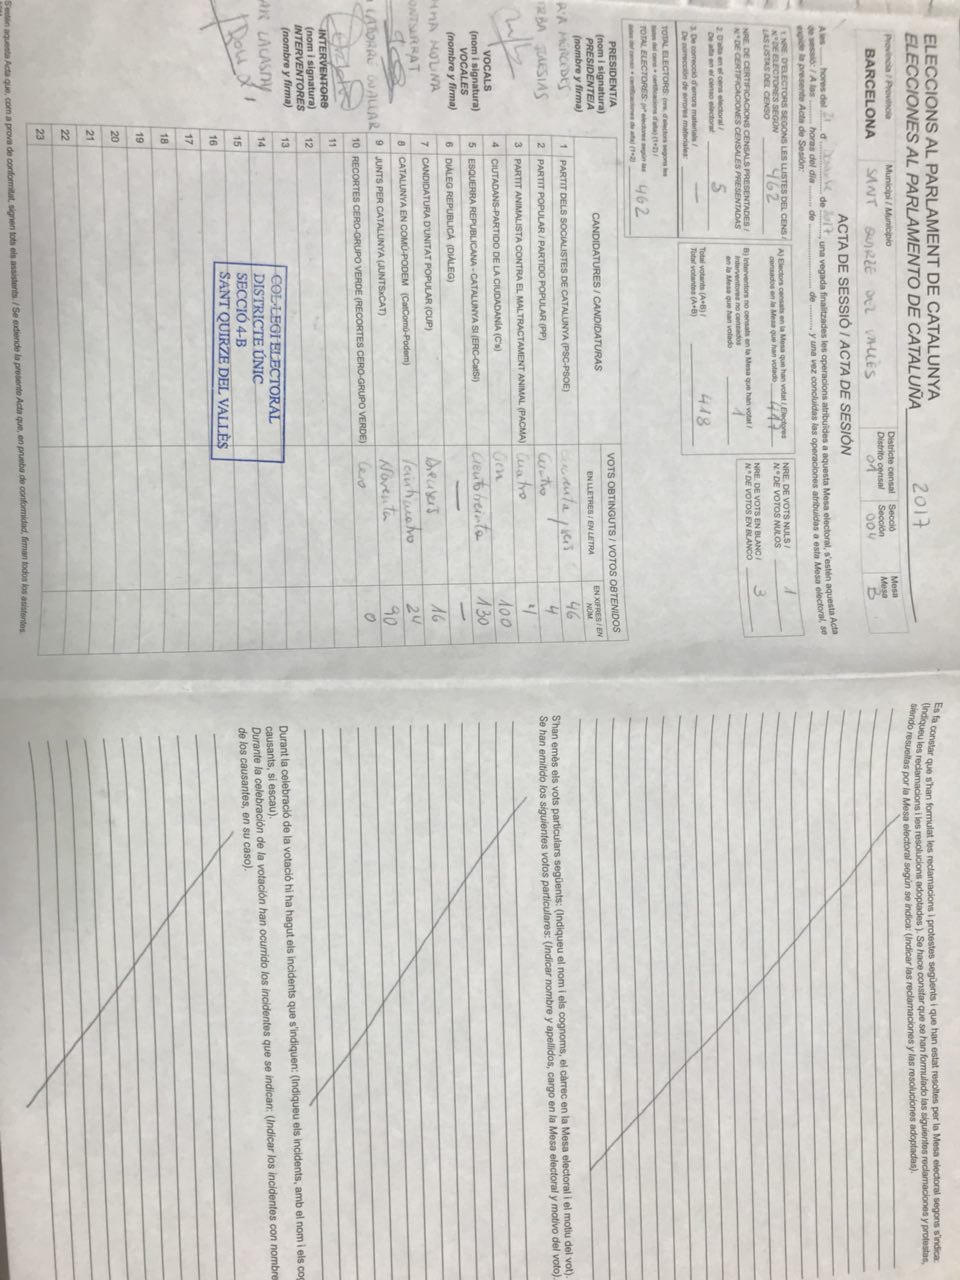 ELECCIONS AL PARLAMENT DE CATALUNYA
ELECCIONES AL PARLAMENTO DE CATALUÑA
2017
Província / Provincia
BARCELONA
Municipi / Municipio
SANT QUIRZE DEL VALLÈS
Districte censal
Distrito censal
01
Secció
Sección
004
Mesa
Mesa
B
ACTA DE SESSIÓ / ACTA DE SESIÓN
A les ... hores del 21 d ... de 2017, una vegada finalitzades les operacions atribuïdes a aquesta Mesa electoral, s'estén aquesta Acta
de sessió: / A las ... horas del día ... de ... de ..., y una vez concluidas las operaciones atribuidas a esta Mesa electoral, se
expide la presente Acta de Sesión:
1. NRE. D'ELECTORS SEGONS LES LLISTES DEL CENS /
N.º DE ELECTORES SEGÚN
LAS LISTAS DEL CENSO
462
NRE. DE CERTIFICACIONS CENSALS PRESENTADES /
N.º DE CERTIFICACIONES CENSALES PRESENTADAS
2. D'alta en el cens electoral /
De alta en el censo electoral:
5
3. De correcció d'errors materials /
De corrección de errores materiales:
—
TOTAL ELECTORS: (nre. d'electors segons les
llistes del cens + certificacions d'alta) (1+2) /
TOTAL ELECTORES: (nº electores según las
listas del censo + certificaciones de alta) (1+2)
462
A) Electors censats en la Mesa que han votat / Electores
censados en la Mesa que han votado
417
B) Interventors no censats en la Mesa que han votat /
Interventores no censados
en la Mesa que han votado
1
Total votants (A+B) /
Total votantes (A+B)
418
NRE. DE VOTS NULS /
N.º DE VOTOS NULOS
1
NRE. DE VOTS EN BLANC /
N.º DE VOTOS EN BLANCO
3
CANDIDATURES / CANDIDATURAS
VOTS OBTINGUTS / VOTOS OBTENIDOS
EN LLETRES / EN LETRA
EN XIFRES / EN NÚM.
1 PARTIT DELS SOCIALISTES DE CATALUNYA (PSC-PSOE) 46
2 PARTIT POPULAR / PARTIDO POPULAR (PP) cuatro 4
3 PARTIT ANIMALISTA CONTRA EL MALTRACTAMENT ANIMAL (PACMA) cuatro 4
4 CIUTADANS-PARTIDO DE LA CIUDADANÍA (C's) cien 100
5 ESQUERRA REPUBLICANA - CATALUNYA SÍ (ERC-CatSí) ciento treinta 130
6 DIÀLEG REPUBLICÀ (DIÀLEG) — —
7 CANDIDATURA D'UNITAT POPULAR (CUP) Dieciseis 16
8 CATALUNYA EN COMÚ-PODEM (CatComú-Podem) Veinticuatro 24
9 JUNTS PER CATALUNYA (JUNTSxCAT) Noventa 90
10 RECORTES CERO-GRUPO VERDE (RECORTES CERO-GRUPO VERDE) Cero 0
11
12
13
14
15
16
17
18
19
20
21
22
23
COL·LEGI ELECTORAL
DISTRICTE ÚNIC
SECCIÓ 4-B
SANT QUIRZE DEL VALLÈS
PRESIDENT/A
(nom i signatura)
PRESIDENTE/A
(nombre y firma)
VOCALS
(nom i signatura)
VOCALES
(nombre y firma)
INTERVENTORS
(nom i signatura)
INTERVENTORES
(nombre y firma)
S'estén aquesta Acta que, com a prova de conformitat, signen tots els assistents. / Se extiende la presente Acta que, en prueba de conformidad, firman todos los asistentes.
Es fa constar que s'han formulat les reclamacions i protestes següents i que han estat resoltes per la Mesa electoral segons s'indica:
(Indiqueu les reclamacions i les resolucions adoptades ). Se hace constar que se han formulado las siguientes reclamaciones y protestas,
siendo resueltas por la Mesa electoral según se indica: (Indicar las reclamaciones y las resoluciones adoptadas).
S'han emès els vots particulars següents: (Indiqueu el nom i els cognoms, el càrrec en la Mesa electoral i el motiu del vot).
Se han emitido los siguientes votos particulares: (Indicar nombre y apellidos, cargo en la Mesa electoral y motivo del voto).
Durant la celebració de la votació hi ha hagut els incidents que s'indiquen: (Indiqueu els incidents, amb el nom i els cog
causants, si escau).
Durante la celebración de la votación han ocurrido los incidentes que se indican: (Indicar los incidentes con nombre
de los causantes, en su caso).